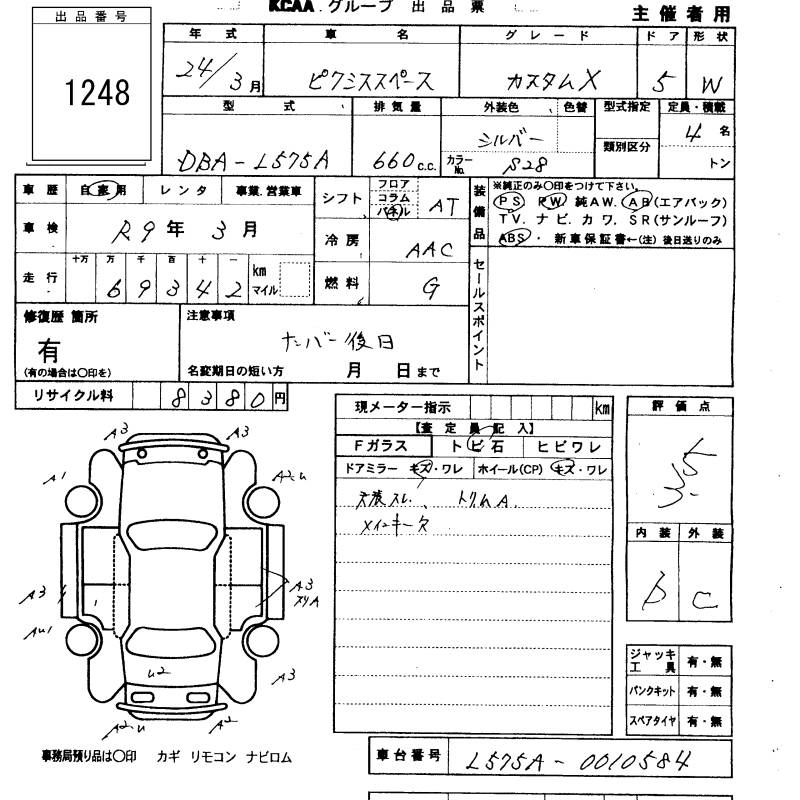 KCAA グループ 出品票
主催者用
出品番号
1248
年式 車名 グレード ドア 形状
24/3月 ピクシススペース カスタムX 5 W
型式 排気量 外装色 色替 型式指定 定員・積載
類別区分
DBA-L575A 660c.c. シルバー 4名
カラーNo. S28 トン
車歴 自家用 レンタ 事業.営業車
車検 R9年3月
走行 十万 万 千 百 十 一
69342 km マイル
シフト フロア コラム パネル AT
冷房 AAC
燃料 G
装備品
※純正のみ〇印をつけて下さい。
PS PW 純AW. AB(エアバック)
TV. ナビ. カワ. SR(サンルーフ)
ABS・ 新車保証書←(注) 後日送りのみ
セールスポイント
修復歴 箇所
有
(有の場合は〇印を)
注意事項
ナンバー後日
名変期日の短い方 月 日まで
リサイクル料 8380円
現メーター指示 km
【査定員記入】
Fガラス トビ石 ヒビワレ
ドアミラー キズ・ワレ ホイール(CP) キズ・ワレ
天張スレ、トリムA.
メインキー欠
評価点
3.5
内装 外装
B C
ジャッキ工具 有・無
パンクキット 有・無
スペアタイヤ 有・無
A3 A3
A1 A2u
A3 A3
スリA
AU1
U2
A3
A2u A2
事務局預り品は〇印 カギ リモコン ナビロム
車台番号 L575A-0010584